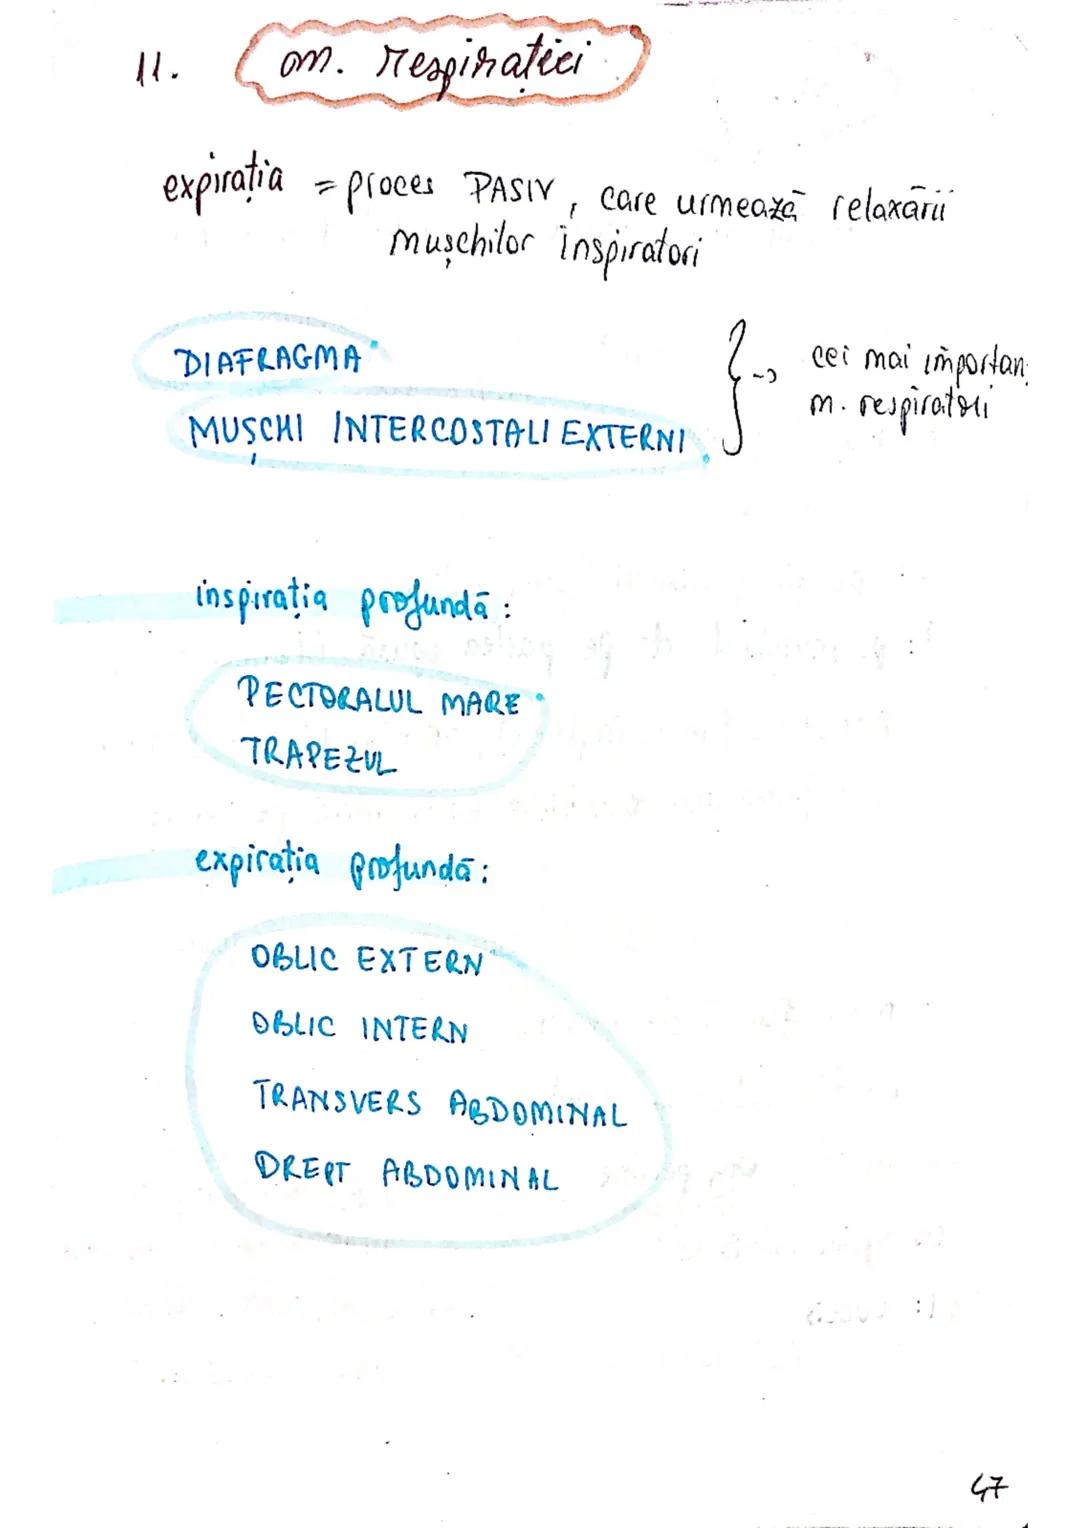 11. m. respirației
expirația = proces PASIV, care urmează relaxării
mușchilor inspiratori
DIAFRAGMA
MUȘCHI INTERCOSTALI EXTERNI
cei mai importan
m. respiratori
inspirația profundă:
PECTORALUL MARE
TRAPEZUL
expirația profundă:
OBLIC EXTERN
OBLIC INTERN
TRANSVERS ABDOMINAL
DREPT ABDOMINAL
47